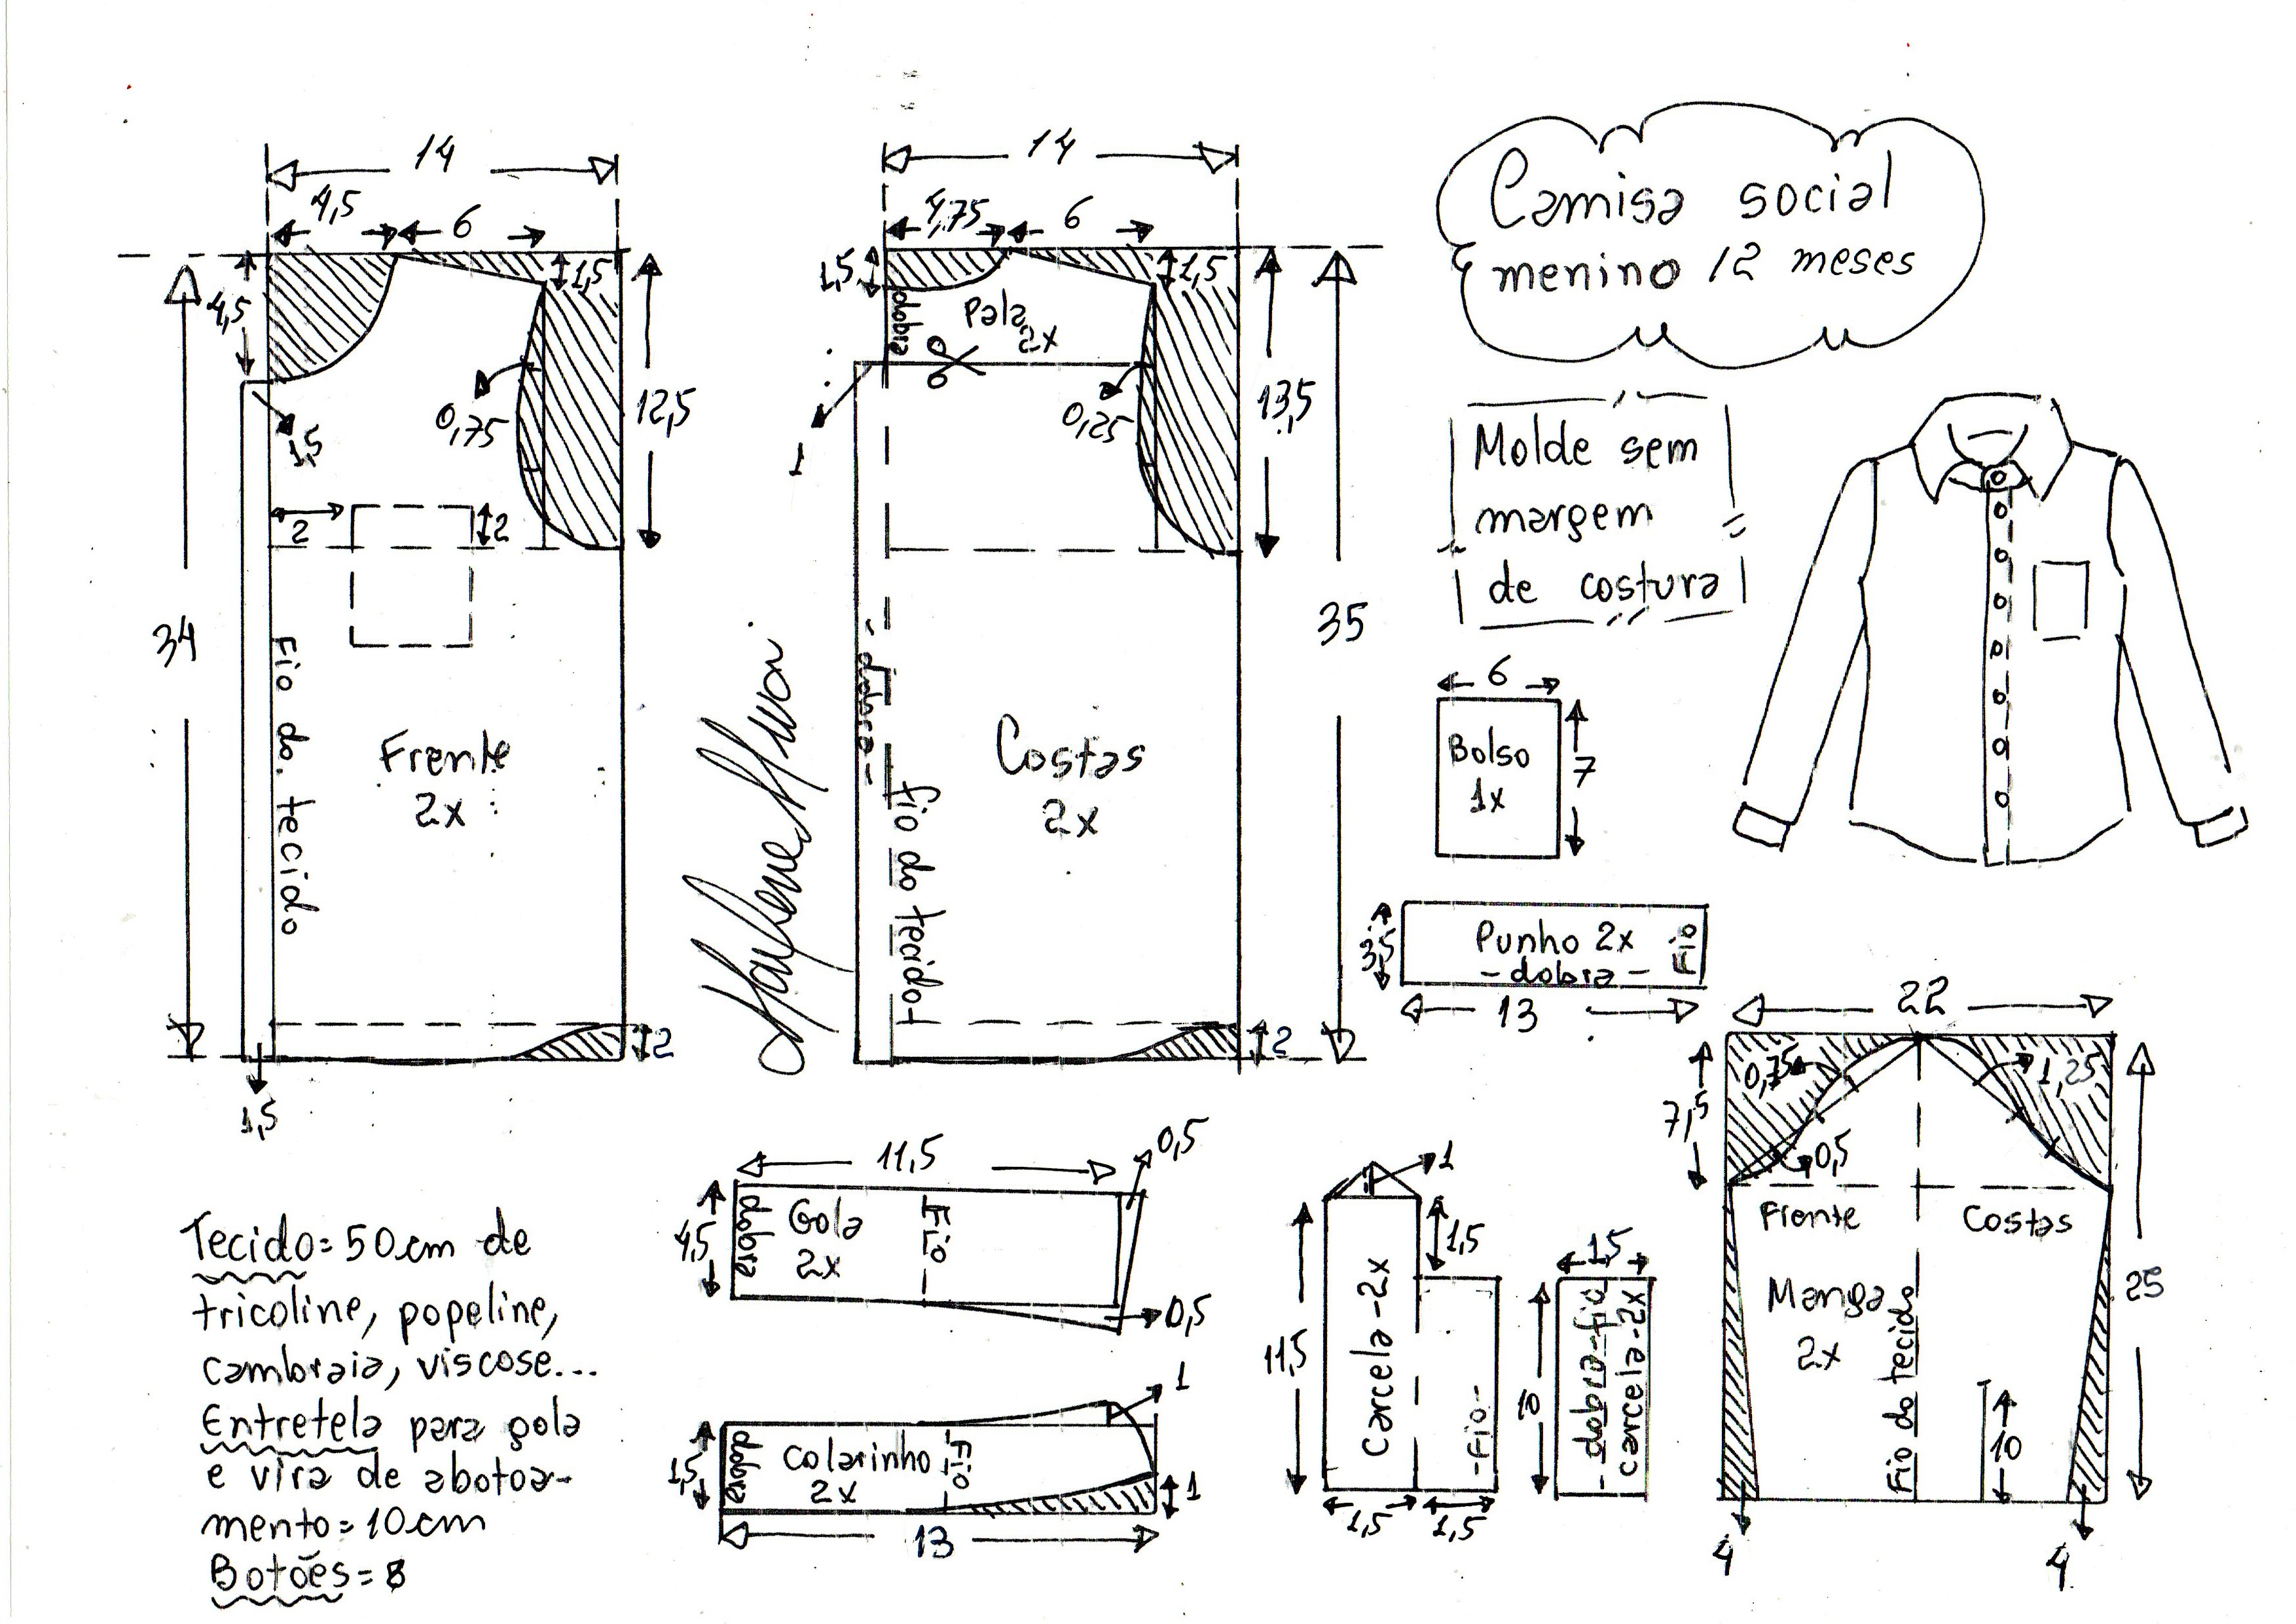 14
4,5
6
4,5
1,5
1,5
0,75
12,5
2
2
34
Fio do tecido
Frente
2x
2
1,5
14
4,75
6
1,5
1,5
dobra
Pala
2x
1
0,25
13,5
35
- dobra -
Costas
2x
fio do tecido
2
Camisa social
menino 12 meses
Molde sem
margem
de costura
6
Bolso
1x
7
3,5
Punho 2x
- dobra -
Fio
13
22
0,75
1,25
7,5
0,5
Frente
Costas
Manga
2x
Fio do tecido
25
10
4
4
11,5
0,5
4,5
dobra
Gola
2x
Fio
0,5
1
1,5
dobra
Colarinho
2x
Fio
1
13
1
1,5
11,5
Carcela - 2x
- Fio -
1,5
1,5
1,5
10
- dobra - fio
carcela - 2x
Tecido = 50cm de
tricoline, popeline,
cambraia, viscose...
Entretela para gola
e vira de abotoa-
mento = 10cm
Botões = 8